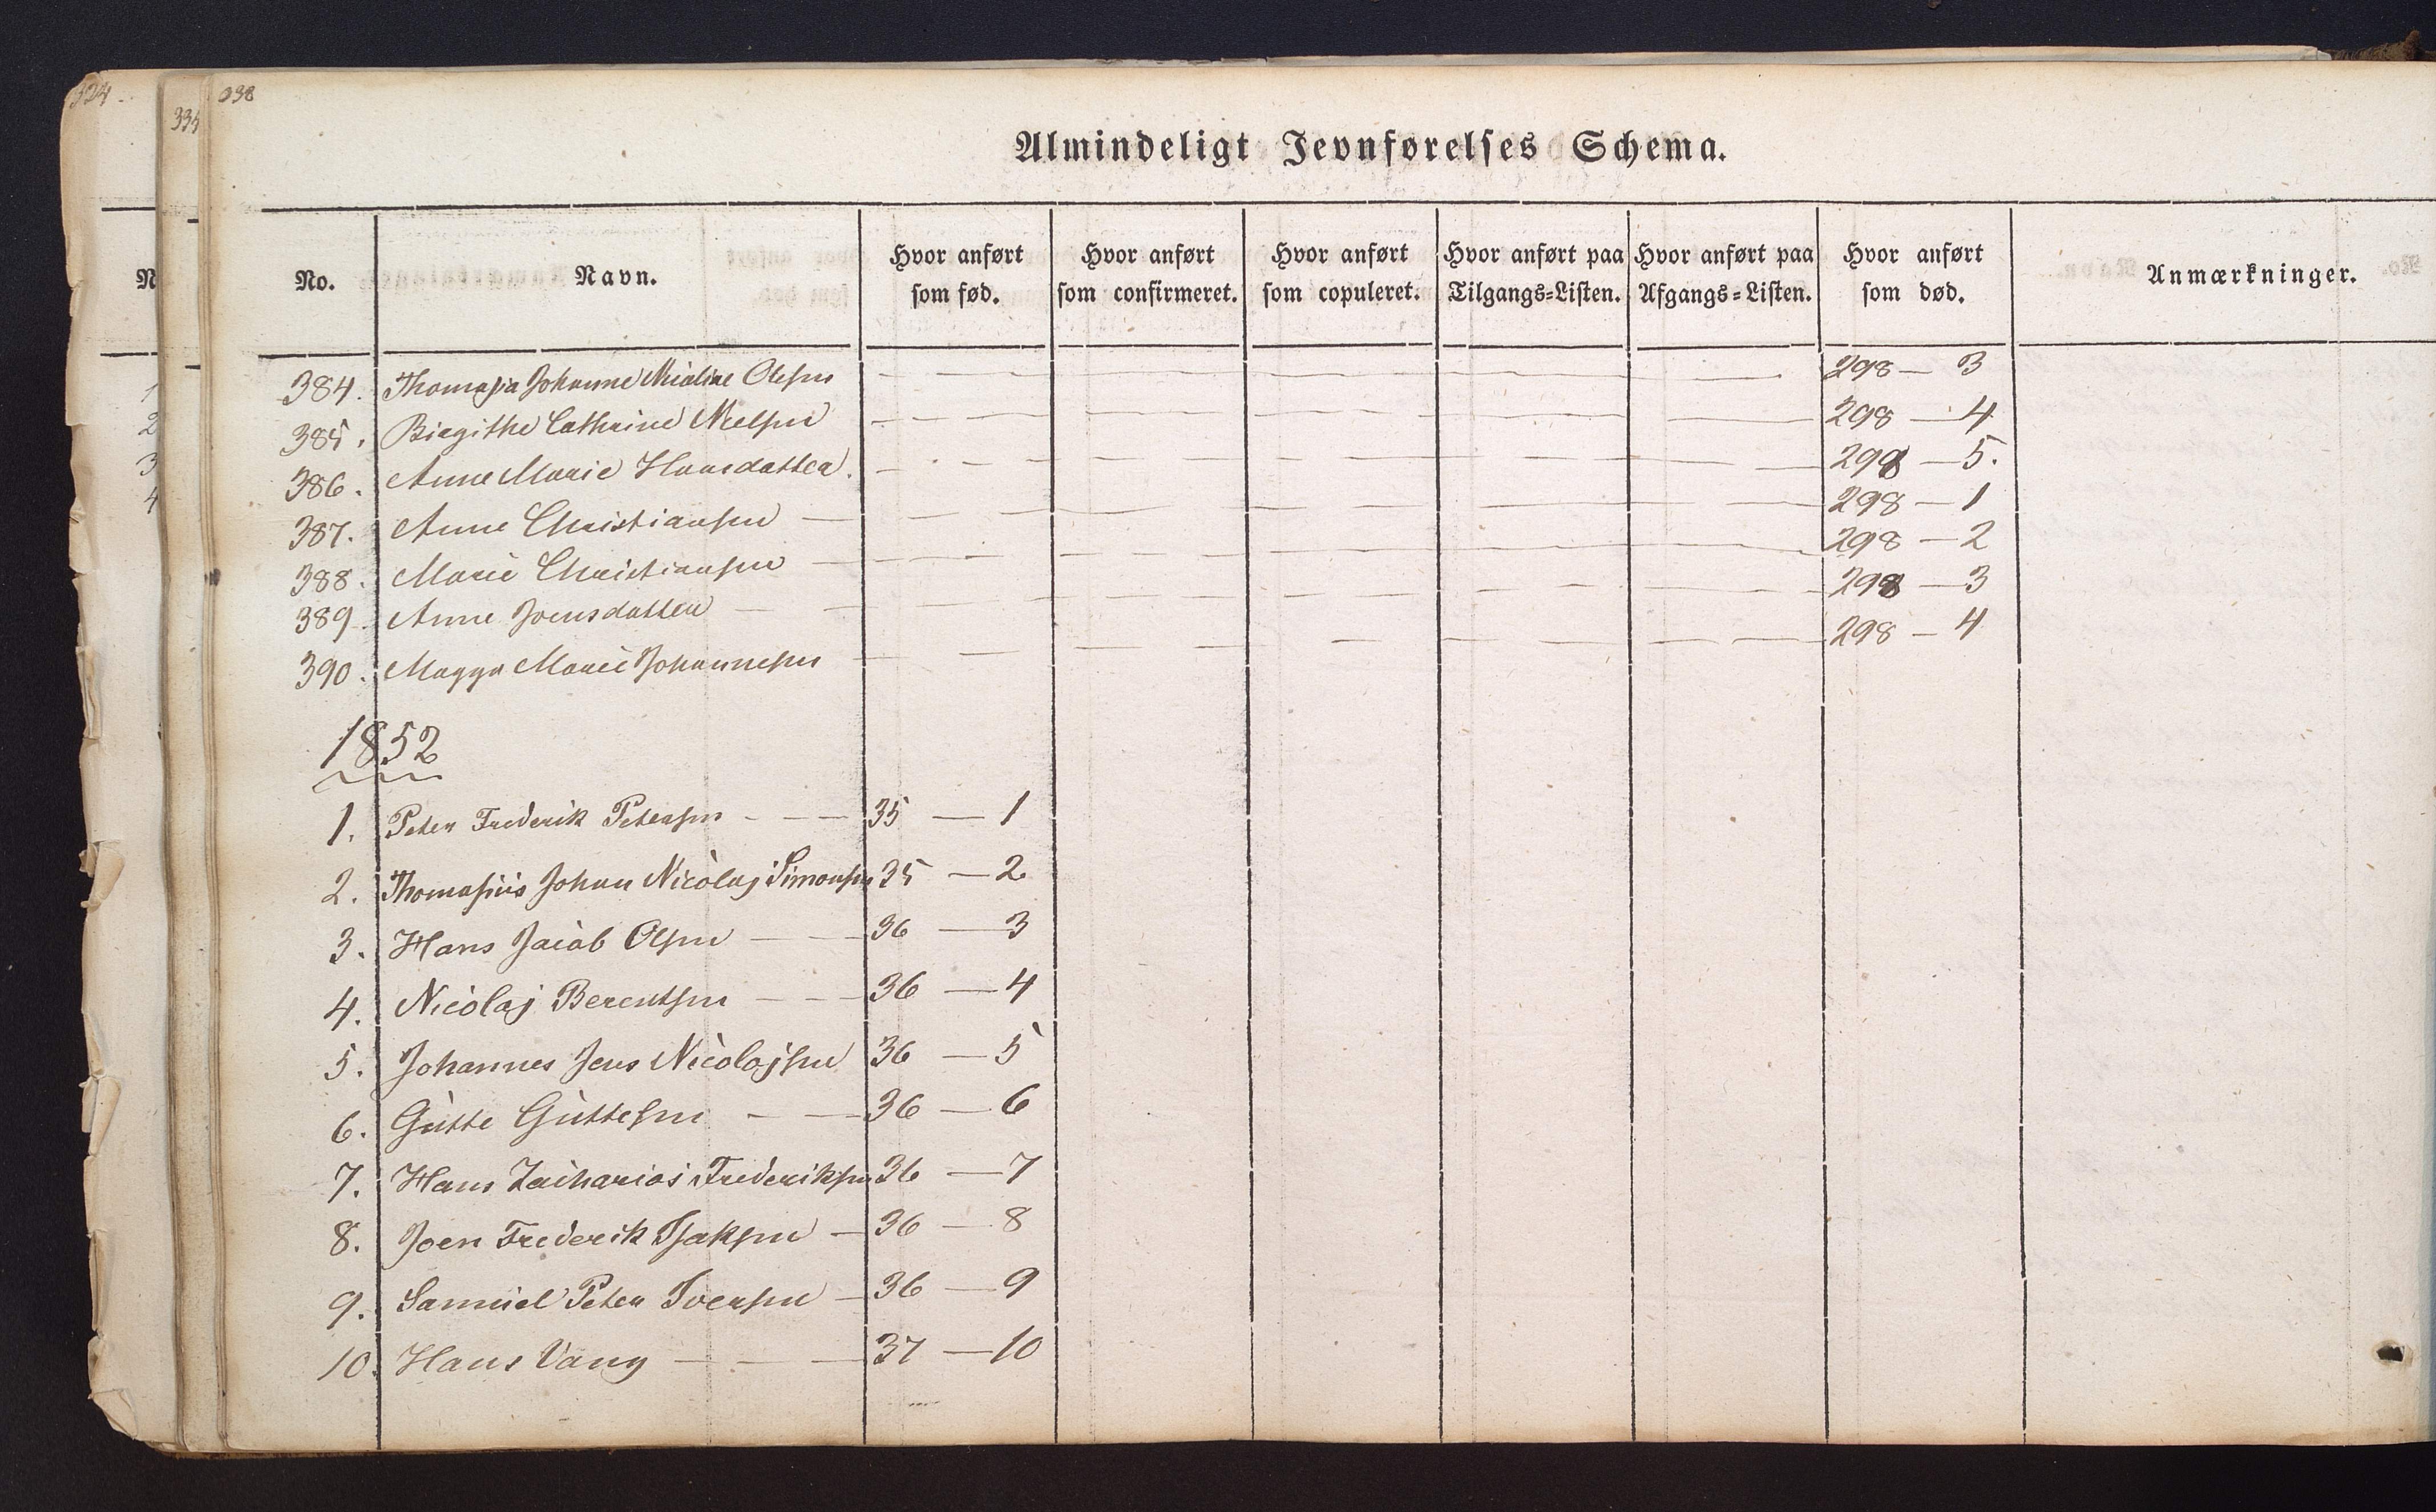 324.
335
338
Almindeligt Jevnførelses Schema.
No. Navn. Hvor anført som fød. Hvor anført som confirmeret. Hvor anført som copuleret. Hvor anført paa Tilgangs=Listen. Hvor anført paa Afgangs=Listen. Hvor anført som død. Anmærkninger.
384. Thomasia Johanne Nicoline Olesen — — — 298 — 3
385. Birgithe Cathrine Nielsen — — — 298 — 4
386. Anne Marie Hansdatter. — — — 298 — 5.
387. Anne Christiansen — — — 298 — 1
388. Marie Christiansen — — — 298 — 2
389. Anne Joensdatter — — — 298 — 3
390. Magga Marie Johannesen — — — 298 — 4
1852
1. Peter Frederik Petersen - — — 35 — 1
2. Thomasius Johan Nicolaj Simonsen 35 — 2
3. Hans Jacob Olsen — — 36 — 3
4. Nicolaj Berentsen — — — 36 — 4
5. Johannes Jens Nicolajsen 36 — 5
6. Gutte Guttesen — — 36 — 6
7. Hans Zacharias Frederiksen 36 — 7
8. Joen Frederik Isaksen — 36 — 8
9. Samuel Peter Iversen — 36 — 9
10. Hans Vang — — — 37 — 10